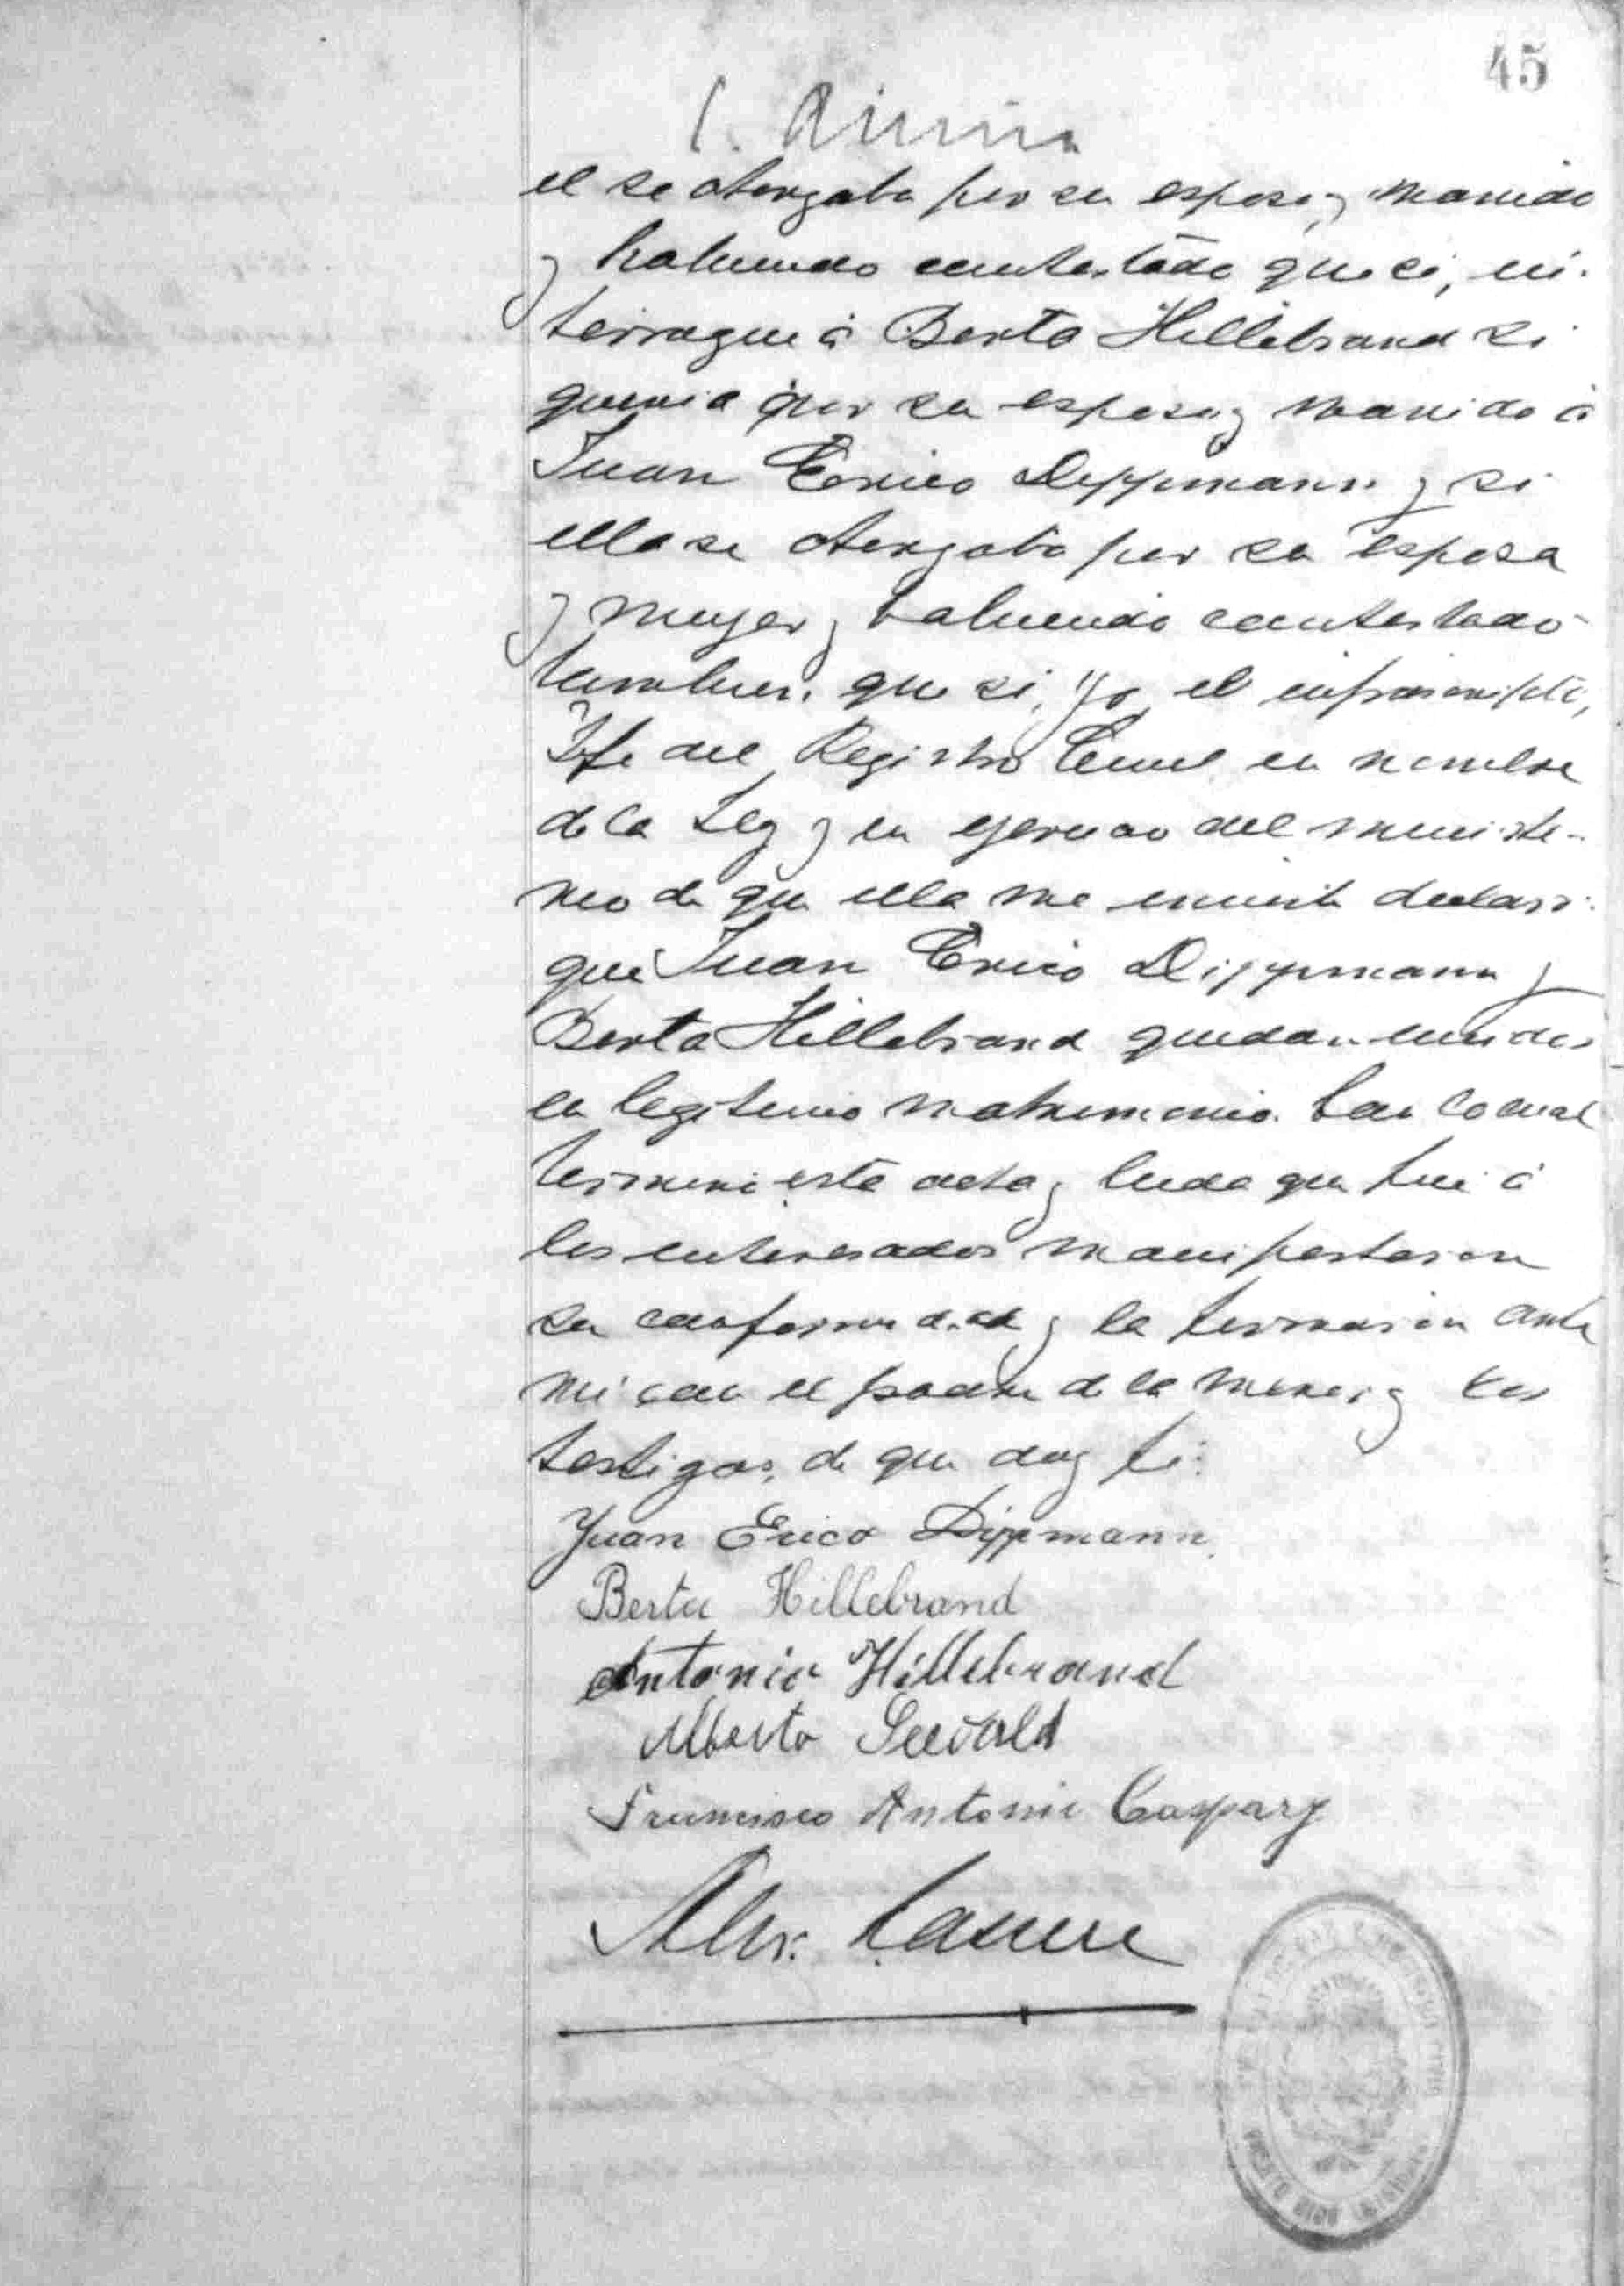 45
el se otorgaba por su esposo y marido
y habiendo contestado que si, in-
terrogué á Berta Hillebrand si
queria por su esposo y marido á
Juan Erico Dippmann y si
ella se otorgaba por su esposa
y mujer y habiendo contestado
tambien que si, yo el infrascripto,
Jefe del Registro Civil en nombre
de la Ley y en ejercicio del ministe-
rio de que ella me inviste declaro
que Juan Erico Dippmann y
Berta Hillebrand quedan unidos
en legitimo matrimonio. Con lo cual
terminé esta acta y leida que fué á
los interesados manifestaron
su conformidad y la firmaron ante
mi con el padre de la menor y los
testigos, de que doy fé:
Juan Erico Dippmann
Berta Hillebrand
Antonio Hillebrand
Alberto Seewald
Francisco Antonio Caspary